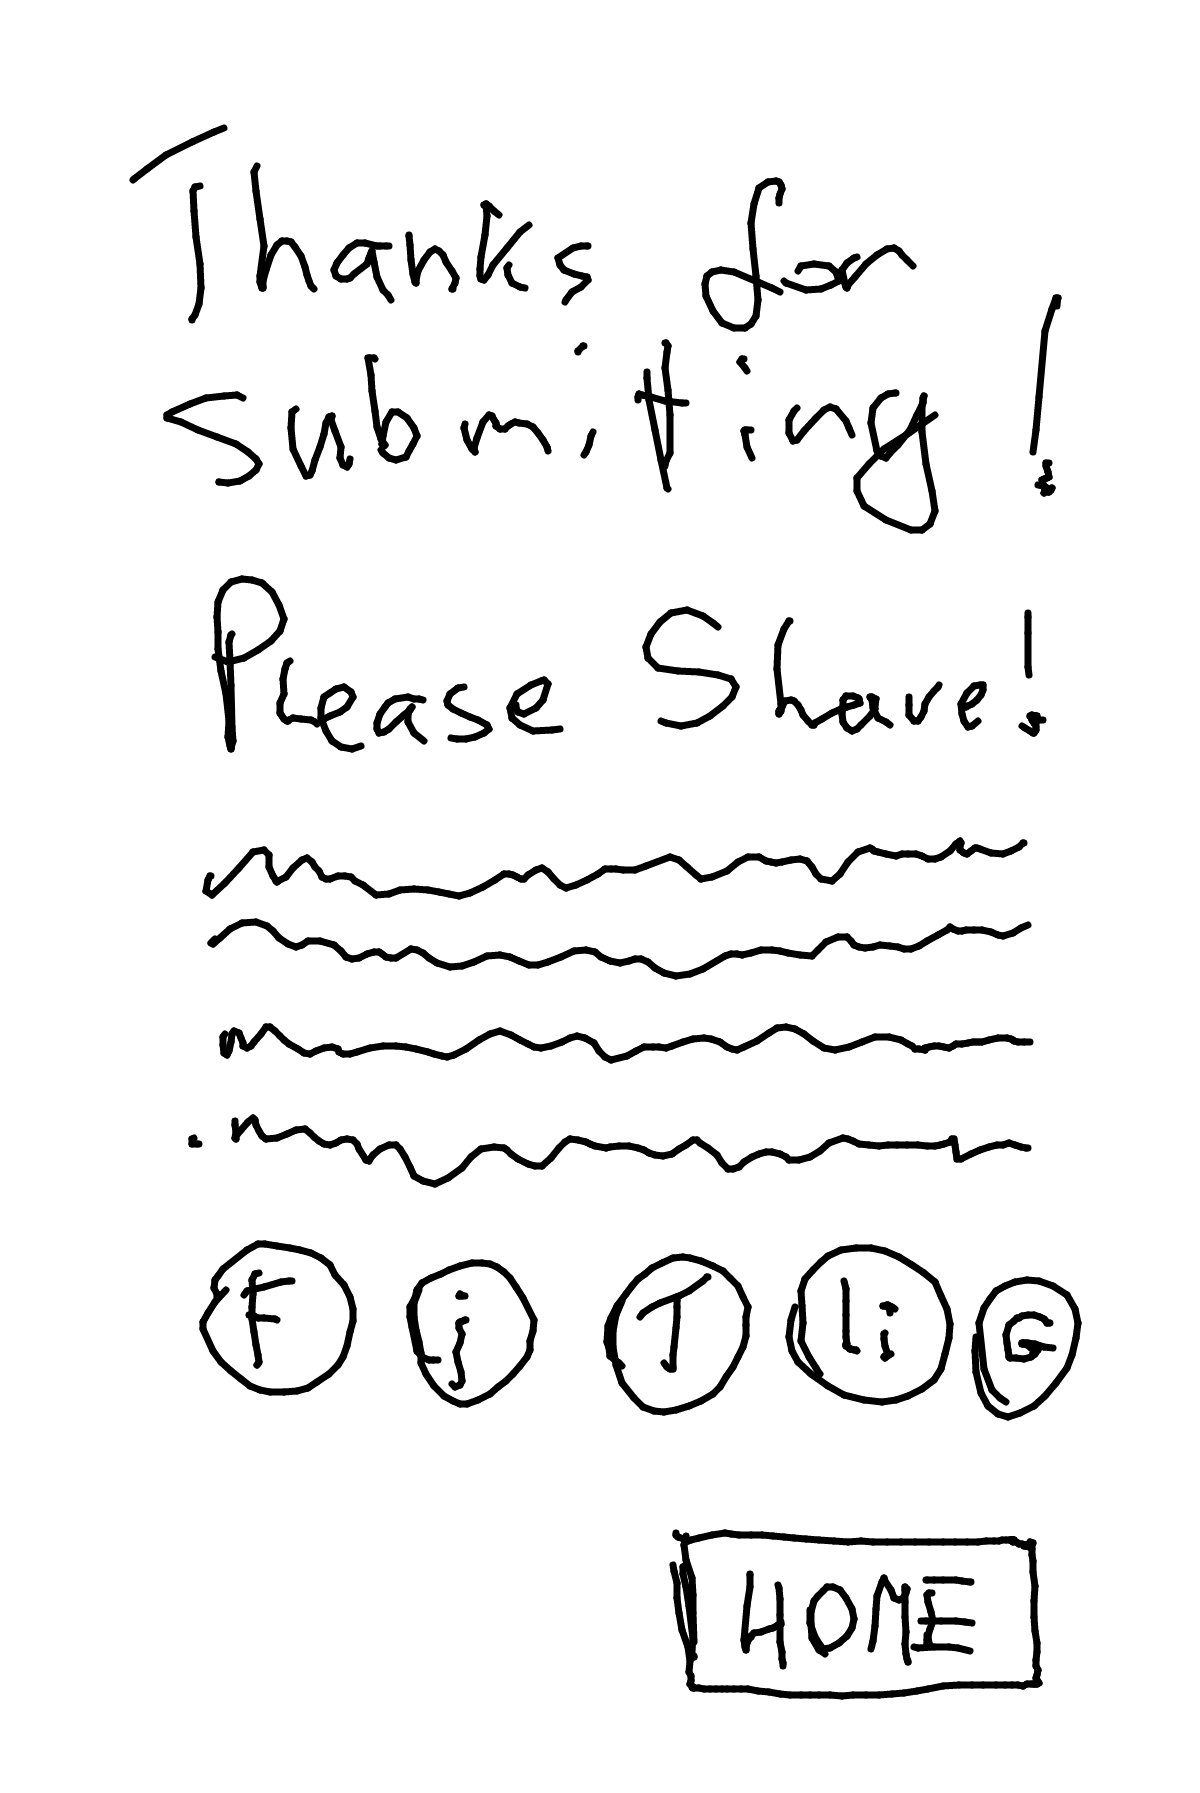 Thanks for
submitting!
Please Share!
F j T li G
HOME